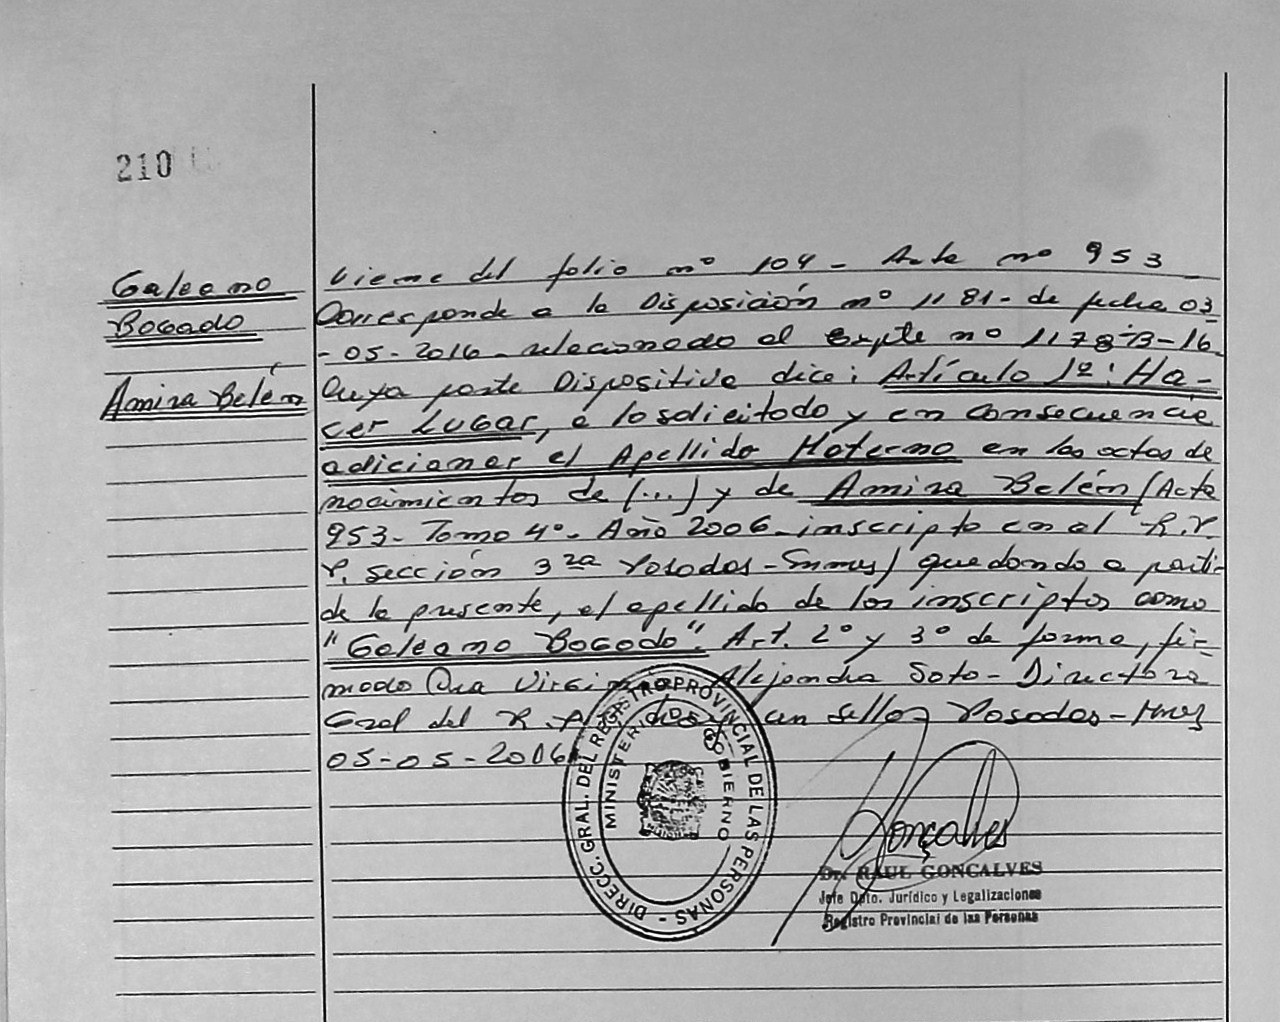 210
Galeano
Bogado
Amira Belén
Viene del folio nº 104 - Acta nº 953
Corresponde a la Disposición nº 1181- de fecha 03
-05-2016- relacionado al Expte nº 1178-B-16
Cuya parte Dispositiva dice: Artículo 1º: Ha-
cer Lugar, a lo solicitado y en consecuencia
adicionar el Apellido Materno en las actas de
nacimientos de (...) y de Amira Belén (Acta
953- Tomo 4º- Año 2006- inscripto en el R.P.
P. Sección 3ra Posadas-) quedando a parti-
de la presente, el apellido de los inscriptos como
"Galeano Bogado". Art. 2º y 3º de forma, fir-
mado Dra Alejandra Soto- Directora
Gral del R. P. un sello, Posadas-
05-05-2006
DIRECC. GRAL. DEL REGISTRO PROVINCIAL DE LAS PERSONAS -
MINISTERIO DE GOBIERNO
Goncalves
Dr. RAUL GONCALVES
Jefe Dpto. Jurídico y Legalizaciones
Registro Provincial de las Personas